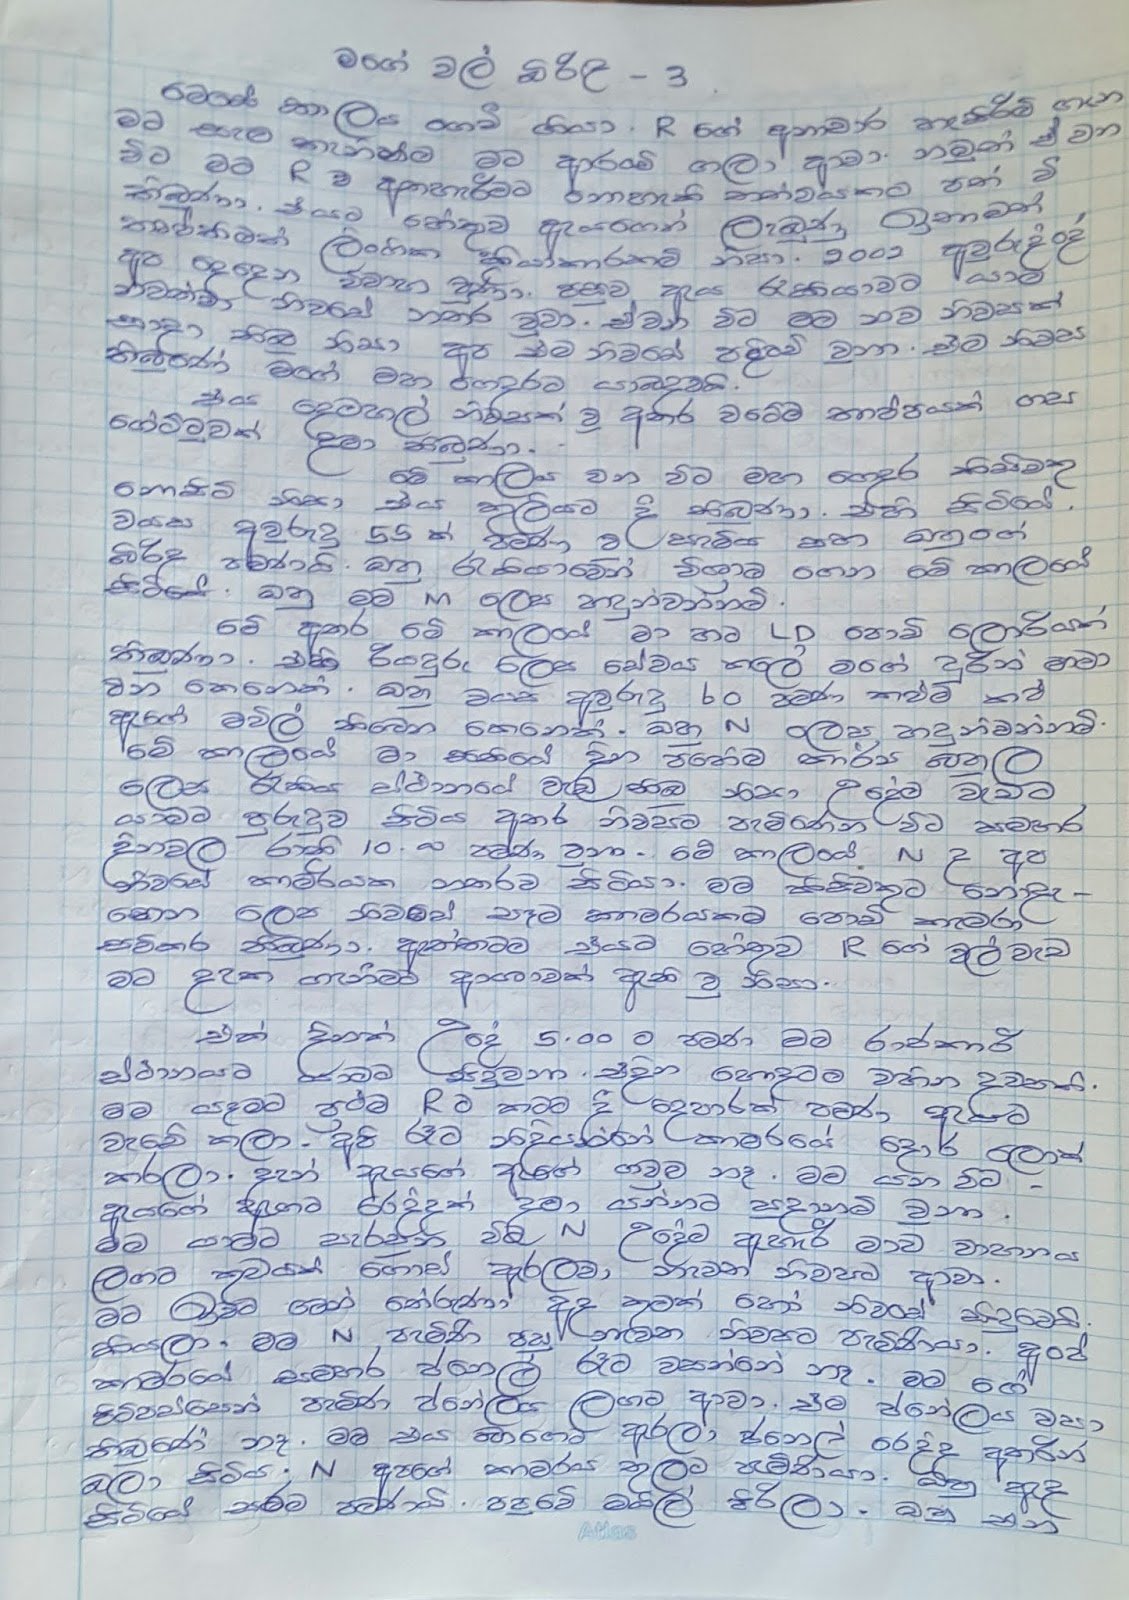 මගේ වල් බිරිඳ - 3
මෙසේ කාලය ගෙවී ගියා. R ගේ අනාචාර හැසිරීම් ගැන
මට සැක හැඟීමක් මට ආයේ ගලා ආවා. නමුත් ඒ වන
විට මට R ව අතහැරීමට නොහැකි තත්වයකට පත් වී
තිබුණා. එයට හේතුව ඇයගෙන් ලැබුණු
ලිංගික ක්‍රියාකාරකම් නිසා. 2002 අවුරුද්දේ
අප දෙදෙන විවාහ වුනා. පසුව ඇය රැකියාවට යාම
නවත්වා නිවසේ නතර වුවා. ඒ වන විට මම නව නිවසක්
සාදා තිබූ නිසා අප එම නිවසේ පදිංචි වුනා. එම නිවස
තිබුණේ මගේ මහ ගෙදරට යාබදවයි.
එය දෙමහල් නිවසක් වූ අතර වටේම තාප්පයක් ගසා
ගේට්ටුවක් දමා තිබුණා.
මේ කාලය වන විට මහ ගෙදර කිසිවකු
නොසිටි නිසා එය කුලියට දී තිබුණා. එහි සිටියේ.
වයස අවුරුදු 55 ක් පමණ වූ පැමිය සහ ඔහුගේ
බිරිඳ පමණයි. ඔහු රැකියාවෙන් විශ්‍රාම ගෙන මේ කාලයේ
සිටියේ. ඔහු මම M ලෙස හඳුන්වන්නම්.
මේ අතර මේ කාලයේ මා සතු LD පොඩි ලොරියක්
තිබුණා. එහි රියදුරු ලෙස සේවය කලේ මගේ දුරින් මාමා
වන කෙනෙක්. ඔහු වයස අවුරුදු 60 පමණ කළුම කළු
ඇඟේ මවිල් තිබෙන කෙනෙක්. ඔහු N ලෙස හඳුන්වන්නම්.
මේ කාලයේ මා සතියේ දින පහේම කාර්ය බහුල
ලෙස රැකියා ස්ථානයේ වැඩ තිබූ නිසා උදේම වැඩට
යාමට පුරුදුව සිටිය අතර නිවසට පැමිණෙන විට සමහර
දිනවල රාත්‍රි 10.00 පමණ වුනා. මේ කාලයේ N ද අප
නිවසේ කාමරයක නතරව සිටියා. මම කිසිවකුට නොදැ-
නෙන ලෙස නිවසේ සෑම කාමරයකම පොඩි කැමරා
සවිකර තිබුණා. ඇත්තටම එයට හේතුව R ගේ වල් වැඩ
මට දැක ගැනීමට ආශාවක් ඇති වූ නිසා.
එක් දිනක් උදේ 5.00 ට පමණ මම රාජකාරී
ස්ථානයට යාමට සිදුවුනා. එදින හොඳටම වහින දවසකි.
මම යෑමට පෙර R ට කතා දී දෙපාරක් පමණ ඇයට
වැඩේ කලා. අපි රෑට නිදියන්නේ කාමරයේ දොර ලොක්
කරලා. දැන් ඇයගේ ඇඟේ ගවුම නැ. මම යන විට -
ඇයගේ ඇඟට රෙද්දක් දමා යන්නට සූදානම් වුනා.
මම යාමට සැරසුන විට N උදේම ඇහැරී මාව වාහනය
ලගට කුඩයක් ගෙනත් ඇරලවා නැවත නිවසට ආවා.
මට මෙන් තේරුණා අද කුමක් හෝ නිවසේ සිදුවෙයි.
කියලා. මම N පැමිණි පසු නැවත නිවසට පැමිණියා. අපේ
කාමරයේ සමහර ජනෙල් රෑට වසන්නේ නෑ. මම ගේ
පිටිපස්සෙන් පැමිණ ජනේලය ලගට ආවා. එම ජනේලය වසා
තිබුණේ නෑ. මම එය හෙමින් ඇරලා ජනෙල් රෙද්ද අතරින්
බලා සිටිය. N අපගේ කාමරය තුලට පැමිණියා. ඔහු ඇඳ
සිටියේ සරම පමණයි. පපුවේ මයිල් පිරිලා. ඔහු
Atlas